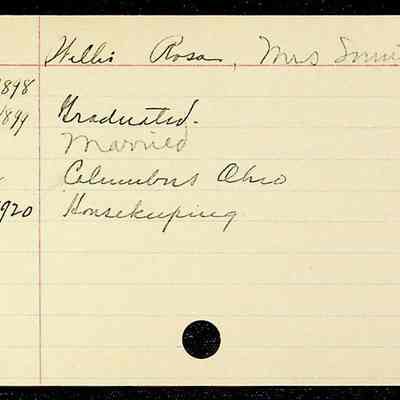 Willis Rosa, Mrs
1898
1899 Graduated.
Married
Columbus Ohio
1920 Housekeeping